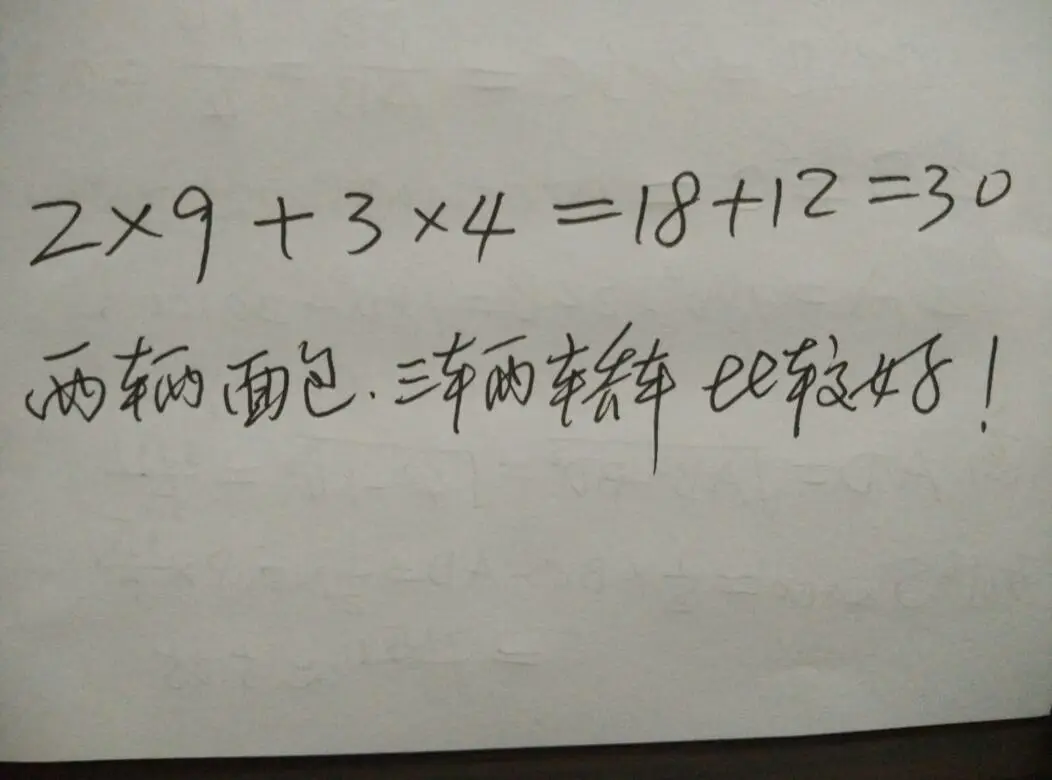 2×9+3×4=18+12=30
两辆面包.三辆轿车比较好!